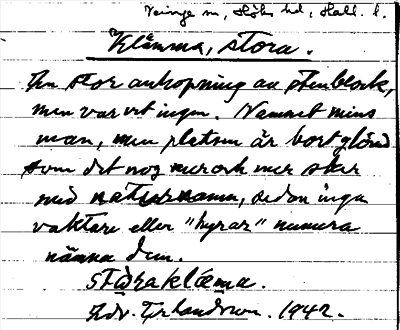 Veinge sn, Höks hd, Hall. l.
Klämma, stora.
En stor anhopning av stenblock,
men var vet ingen. Namnet mins
man, men platsen är bortglömd
som det nog mer och mer sker
med naturnamn, sedan inga
vaktare eller "hyrar" numera
nämna dem.
stɷ̀raklǽma.
Adv. Erlandsson. 1942.